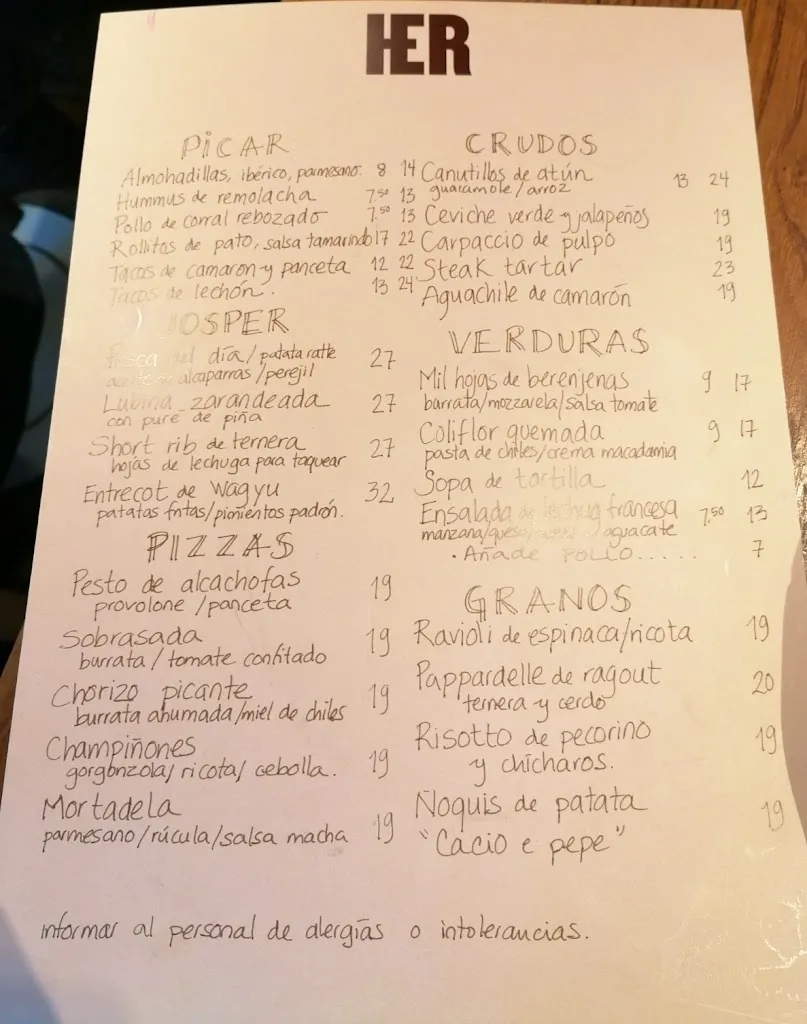 HER
PiCAR
Almohadillas, ibérico, parmesano. 8 14
Hummus de remolacha 7.50 13
Pollo de corral rebozado 7.50 13
Rollitos de pato, salsa tamarindo 17 22
Tacos de camaron y panceta 12 22
Tacos de lechón. 13 24
JOSPER
del día/patata ratte 27
alcaparras/perejil
Lubina zarandeada 27
con puré de piña
Short rib de ternera 27
hojas de lechuga para taquear
Entrecot de Wagyu 32
patatas fritas/pimientos padrón.
PIZZAS
Pesto de alcachofas 19
provolone/panceta
Sobrasada 19
burrata/tomate confitado
Chorizo picante 19
burrata ahumada/miel de chiles
Champiñones 19
gorgonzola/ricota/cebolla.
Mortadela 19
parmesano/rúcula/salsa macha
CRUDOS
Canutillos de atún 13 24
guacamole/arroz
Ceviche verde y jalapeños 19
Carpaccio de pulpo 19
Steak tartar 23
Aguachile de camarón 19
VERDURAS
Mil hojas de berenjenas 9 17
burrata/mozzarela/salsa tomate
Coliflor quemada 9 17
pasta de chiles/crema macadamia
Sopa de tortilla 12
Ensalada de lechug francesa 7.50 13
manzana/queso/ aguacate
· Añade POLLO..... 7
GRANOS
Ravioli de espinaca/ricota 19
Pappardelle de ragout 20
ternera y cerdo
Risotto de pecorino 19
y chícharos.
Ñoquis de patata 19
"Cacio e pepe"
informar al personal de alergías o intolerancias.